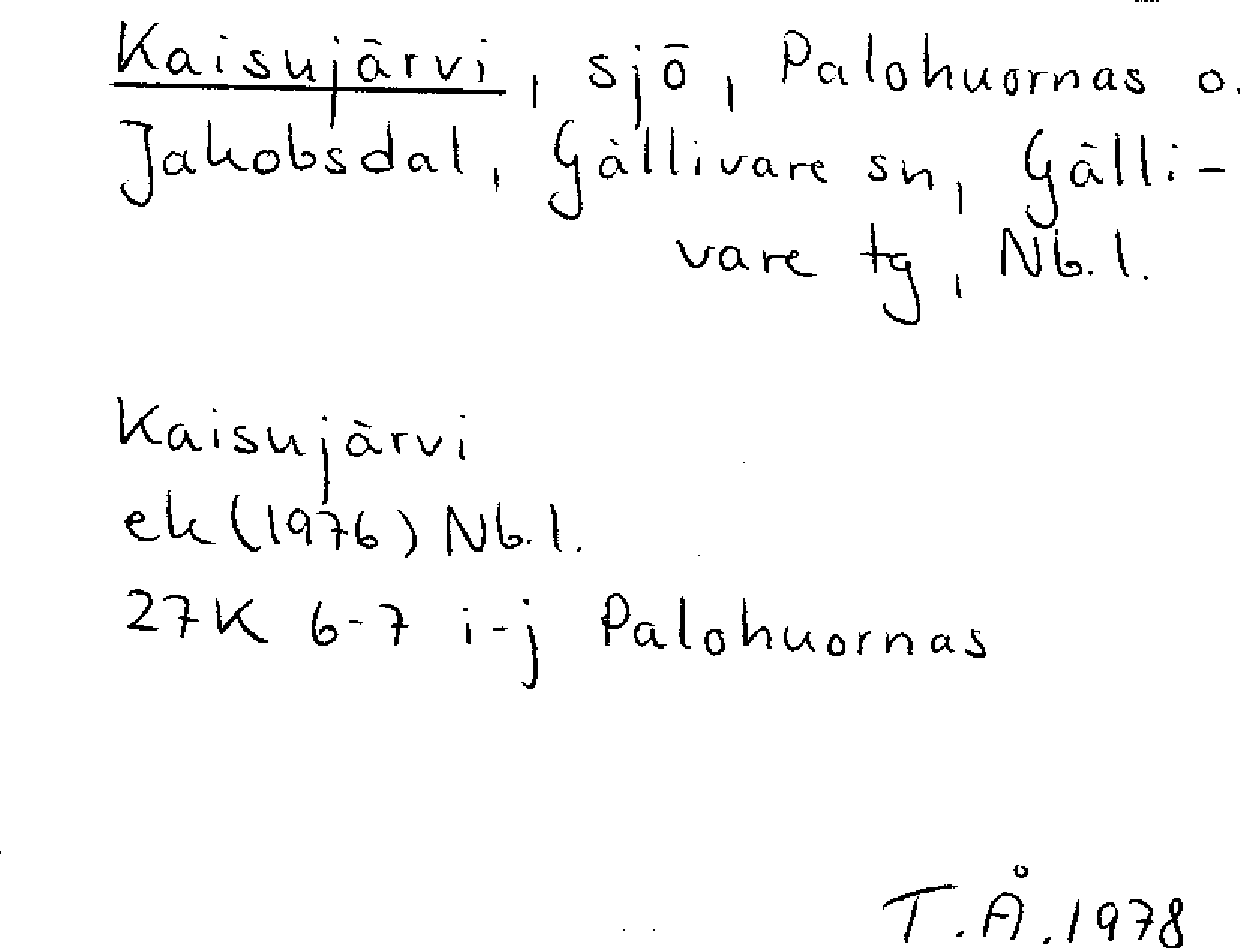 Kaisujärvi, sjö, Palohuornas o.
Jakobsdal, Gällivare sn, Gälli-
vare tg, Nb.l.
Kaisujärvi
ek (1976) Nb.l.
27K 6-7 i-j Palohuornas
T.Å.1978